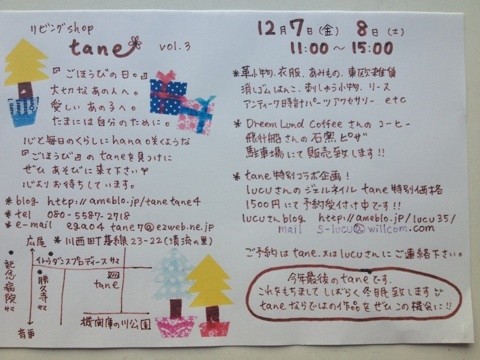 リビングshop
tane vol.3
『ごほうびの日。』
大切なあの人へ。
愛しいあの子へ。
たまには自分のために。
心と毎日のくらしにhana咲くような
『ごほうび』のtaneを見つけに
ぜひあそびに来て下さい
心よりお待ちしています。
*blog http://ameblo.jp/tanetane4
*tel 080-5587-2718
*e-mail ega04tane7@ezweb.ne.jp
川西町基線23-22
広尾
記念病院サマ
勝久寺サマ
音更
イトウダンスプロデュースサマ
tane
機関庫の川公園
12月7日(金) 8日(土)
11:00〜15:00
*革小物、衣服、あみもの、東欧雑貨
消しゴムはんこ、刺しゅう小物、リース
アンティーク時計パーツアクセサリー etc
*Dream Lund Coffeeさんのコーヒー
飛行船さんの石窯ピザ
駐車場にて販売致します!!
*tane特別コラボ企画!
lucuさんのジェルネイル tane特別価格
1500円にて予約受付中です!!
lucuさんblog http://ameblo.jp/lucu35/
mail s-lucu@willcom.com
ご予約はtane.又はlucuさんにご連絡下さい。
今年最後のtaneです。
これをもちまして、しばらく冬眠致します
taneならではの作品をぜひこの機会に!!